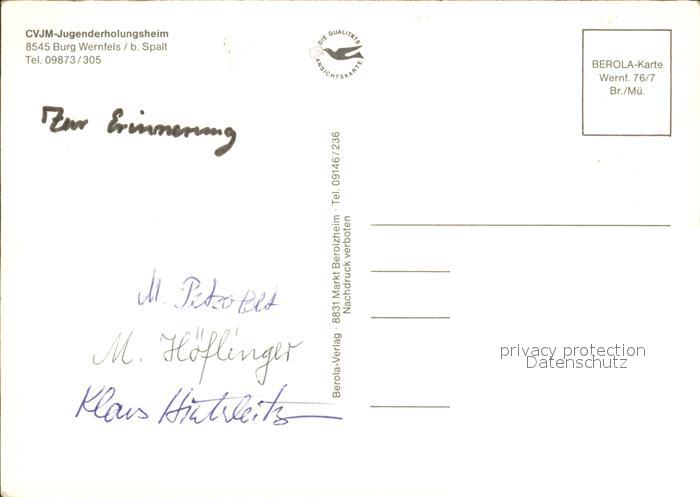 CVJM-Jugenderholungsheim
8545 Burg Wernfels / b. Spalt
Tel. 09873 / 305
DIE QUALITÄTS
ANSICHTSKARTE
BEROLA-Karte
Wernf. 76/7
Br./Mü.
Zur Erinnerung
Berola-Verlag · 8831 Markt Berolzheim · Tel. 09146 / 236
Nachdruck verboten
M.
M. Höflinger
Klaus
privacy protection
Datenschutz